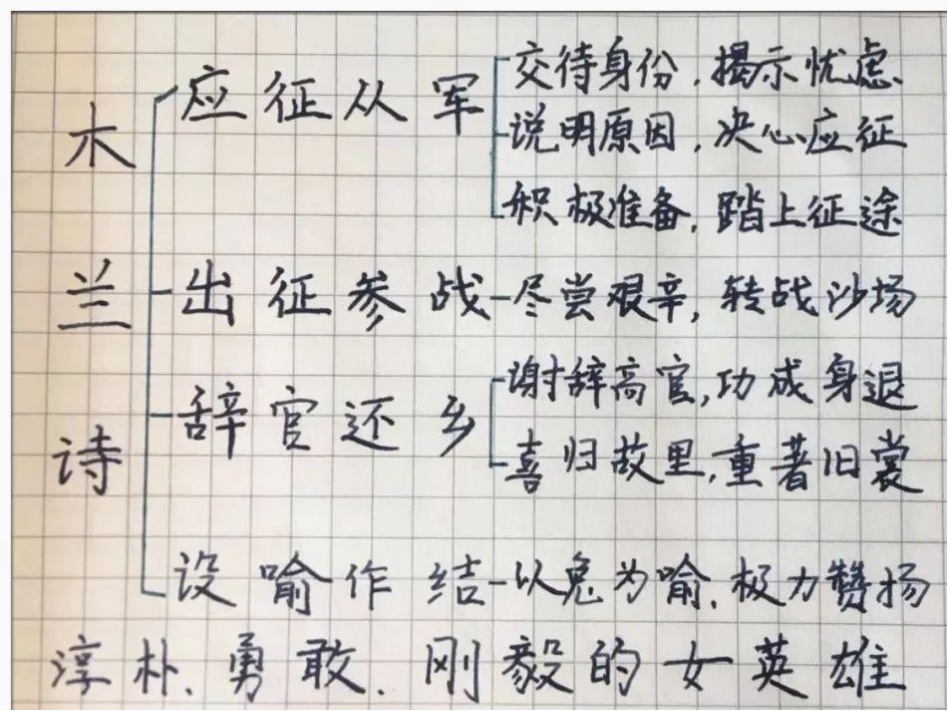 木兰诗
应征从军
交待身份,揭示忧虑
说明原因,决心应征
积极准备,踏上征途
出征参战
尽尝艰辛,转战沙场
辞官还乡
谢辞高官,功成身退
喜归故里,重著旧裳
设喻作结
以兔为喻,极力赞扬
淳朴、勇敢、刚毅的女英雄